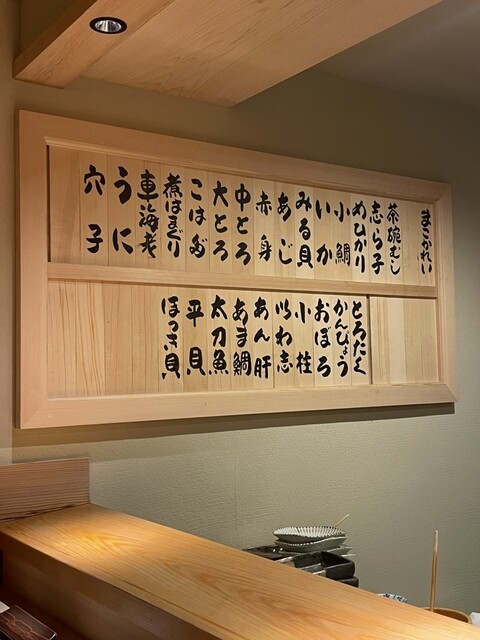 まこがれい
茶碗むし
志ら子
めひかり
小鯛
いか
みる貝
あじ
赤身
中とろ
大とろ
こはだ
煮はまぐり
車海老
うに
穴子
とろたく
かんぴょう
おぼろ
小柱
いわ志
あん肝
あま鯛
太刀魚
平貝
ほっき貝